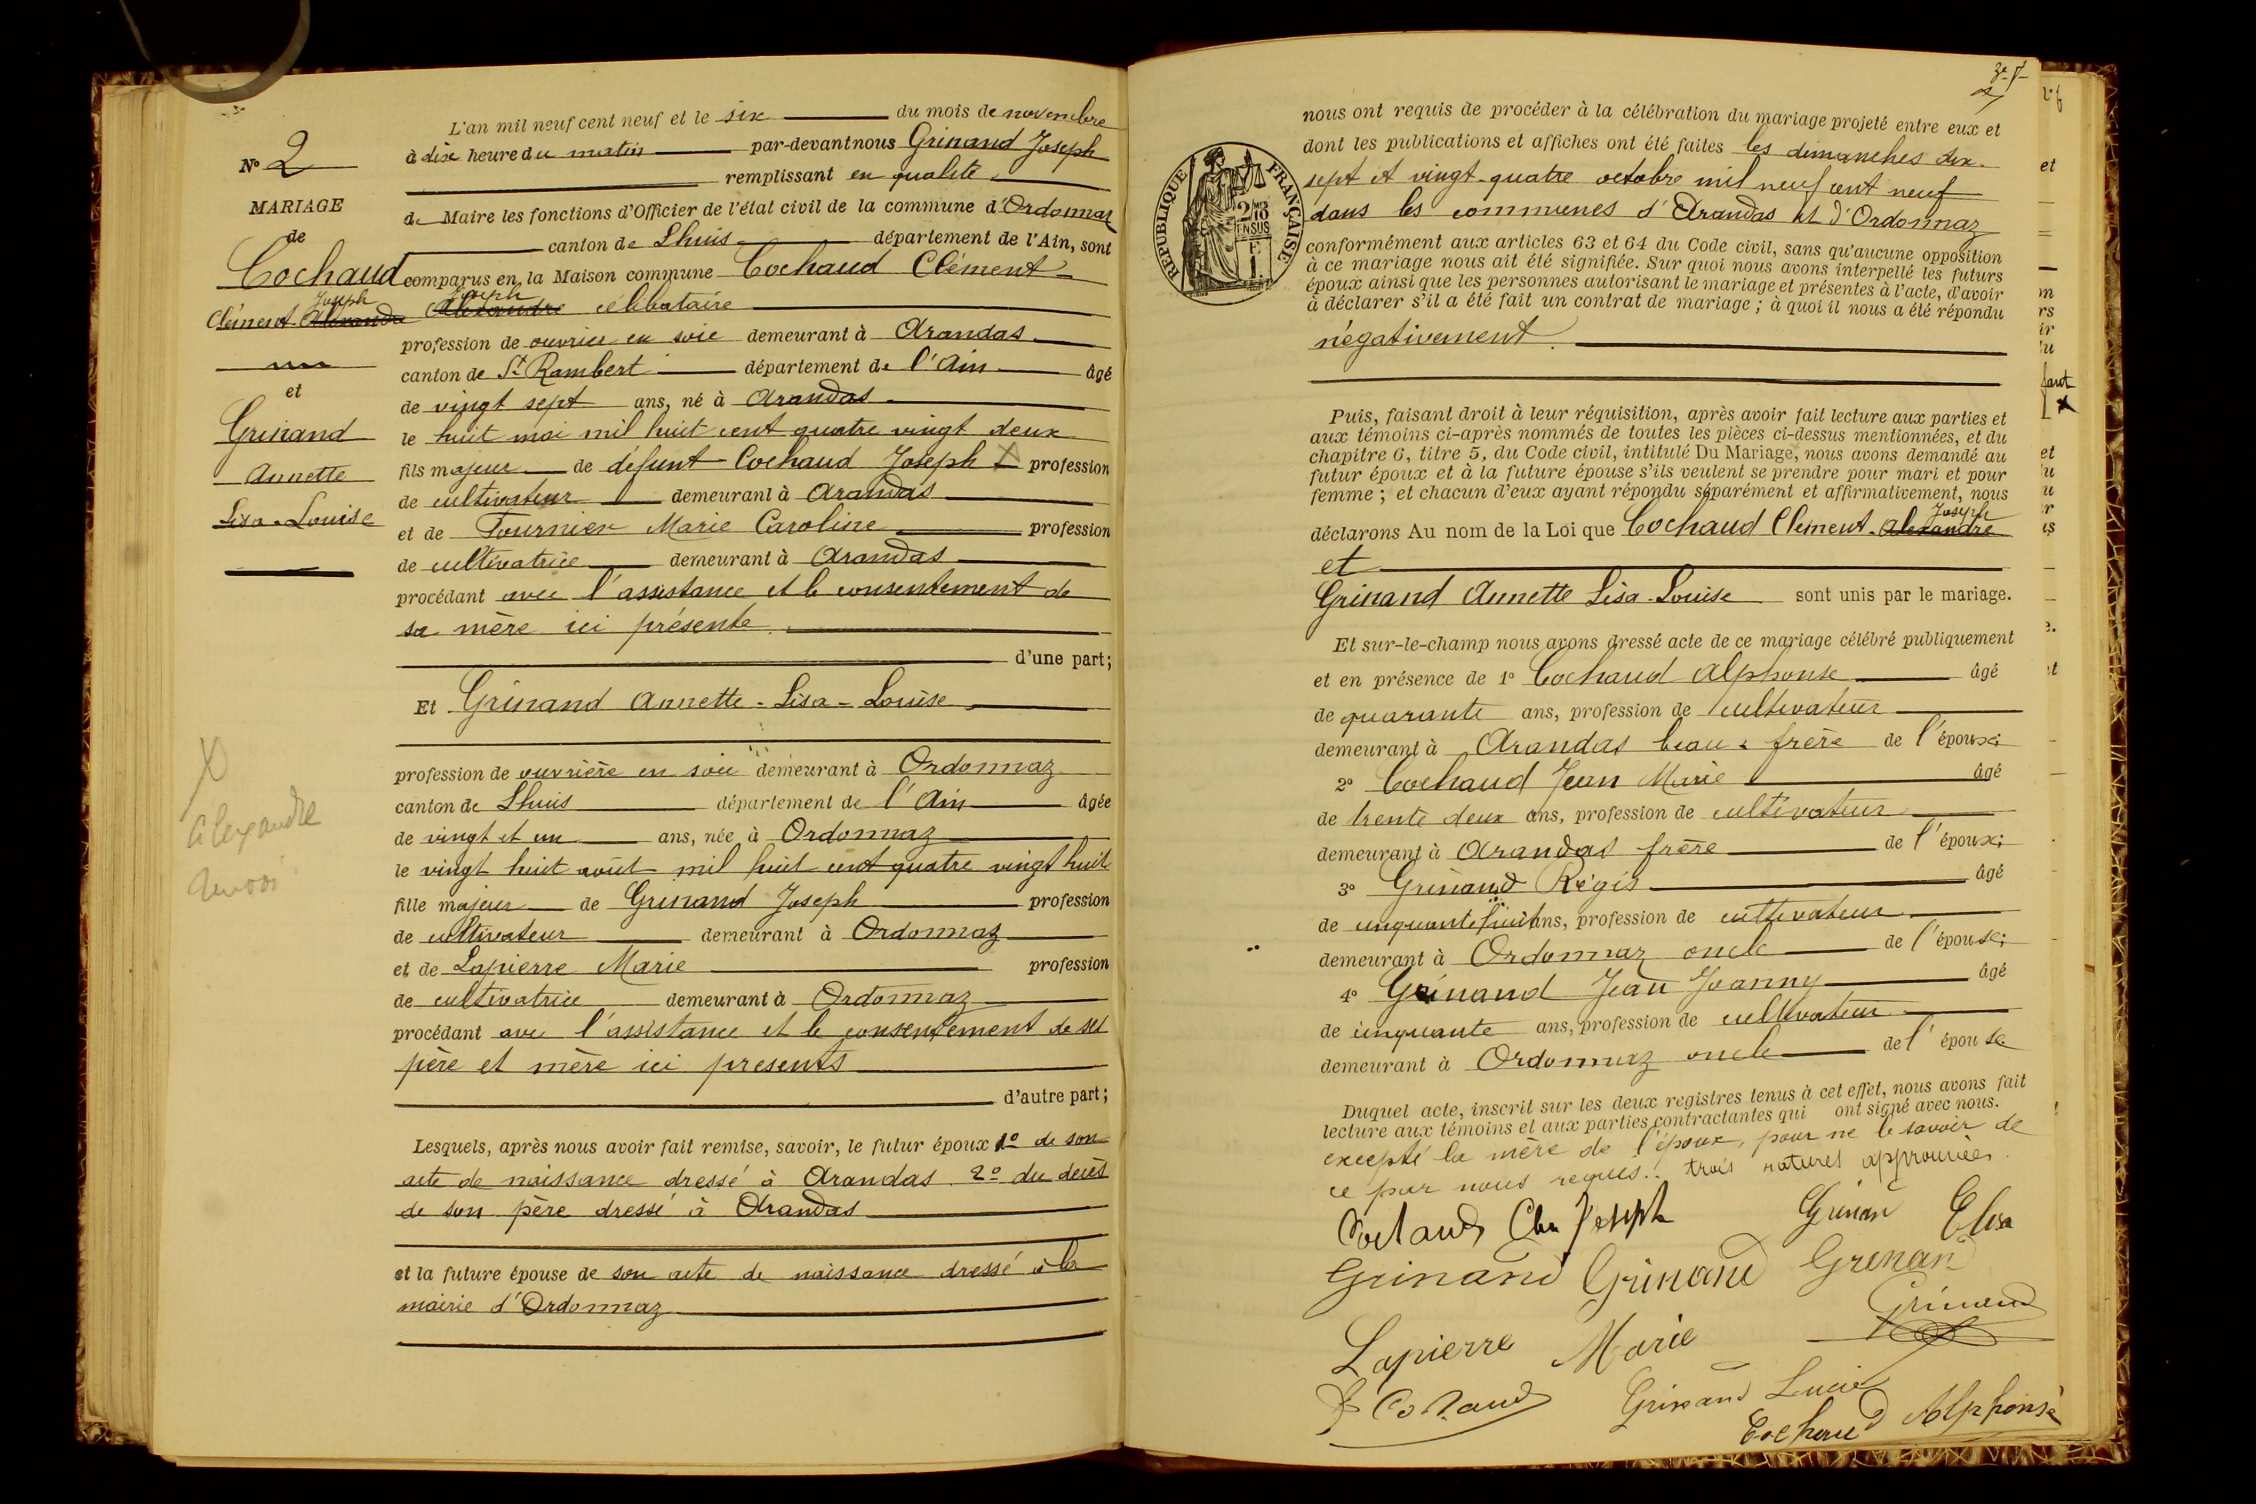 N° 2
MARIAGE
de
Cochaud
Joseph
Clément Alexandre
et
Grinand
Annette
Lisa-Louise
Alexandre
L'an mil neuf cent neuf et le six du mois de novembre
à dix heure du matin par-devant nous Grinand Joseph
remplissant en qualité
de Maire les fonctions d'Officier de l'état civil de la commune d'Ordonnaz
canton de Lhuis département de l'Ain, sont
comparus en la Maison commune Cochaud Clément
Joseph
Alexandre célibataire
profession de ouvrier en soie demeurant à Arandas
canton de St Rambert département de l'Ain âgé
de vingt sept ans, né à Arandas
le huit mai mil huit cent quatre vingt deux
fils majeur de défunt Cochaud Joseph profession
de cultivateur demeurant à Arandas
et de Fournier Marie Caroline profession
de cultivatrice demeurant à Arandas
procédant avec l'assistance et le consentement de
sa mère ici présente
d'une part;
Et Grinand Annette-Lisa-Louise
profession de ouvrière en soie demeurant à Ordonnaz
canton de Lhuis département de l'Ain âgée
de vingt et un ans, née à Ordonnaz
le vingt huit août mil huit cent quatre vingt huit
fille majeur de Grinand Joseph profession
de cultivateur demeurant à Ordonnaz
et de Lapierre Marie profession
de cultivatrice demeurant à Ordonnaz
procédant avec l'assistance et le consentement de ses
père et mère ici presents
d'autre part;
Lesquels, après nous avoir fait remise, savoir, le futur époux 1° de son
acte de naissance dressé à Arandas 2° du decès
de son père dressé à Arandas
et la future épouse de son acte de naissance dressé à la
mairie d'Ordonnaz
RÉPUBLIQUE FRANÇAISE
nous ont requis de procéder à la célébration du mariage projeté entre eux et
dont les publications et affiches ont été faites les dimanches dix-
sept et vingt-quatre octobre mil neuf cent neuf
dans les communes d'Arandas et d'Ordonnaz
conformément aux articles 63 et 64 du Code civil, sans qu'aucune opposition
à ce mariage nous ait été signifiée. Sur quoi nous avons interpellé les futurs
époux ainsi que les personnes autorisant le mariage et présentes à l'acte, d'avoir
à déclarer s'il a été fait un contrat de mariage; à quoi il nous a été répondu
négativement.
Puis, faisant droit à leur réquisition, après avoir fait lecture aux parties et
aux témoins ci-après nommés de toutes les pièces ci-dessus mentionnées, et du
chapitre 6, titre 5, du Code civil, intitulé Du Mariage, nous avons demandé au
futur époux et à la future épouse s'ils veulent se prendre pour mari et pour
femme; et chacun d'eux ayant répondu séparément et affirmativement, nous
Joseph
déclarons Au nom de la Loi que Cochaud Clément-Alexandre
et
Grinand Annette Lisa-Louise sont unis par le mariage.
Et sur-le-champ nous avons dressé acte de ce mariage célébré publiquement
et en présence de 1° Cochaud Alphonse âgé
de quarante ans, profession de cultivateur
demeurant à Arandas beau-frère de l'époux;
2° Cochaud Jean Marie âgé
de trente deux ans, profession de cultivateur
demeurant à Arandas frère de l'époux;
3° Grinand Régis âgé
de cinquante huit ans, profession de cultivateur
demeurant à Ordonnaz oncle de l'épouse;
4° Grinand Jean Joanny âgé
de cinquante ans, profession de cultivateur
demeurant à Ordonnaz oncle de l'épouse
Duquel acte, inscrit sur les deux registres tenus à cet effet, nous avons fait
lecture aux témoins et aux parties contractantes qui ont signé avec nous.
excepté la mère de l'époux, pour ne le savoir de
ce par nous requis. trois ratures approuvées.
Joseph Grinan Elisa
Grinand Grinand Grenand
Grinand
Lapierre Marie
Grinand Lucie
Cochaud Alphonse